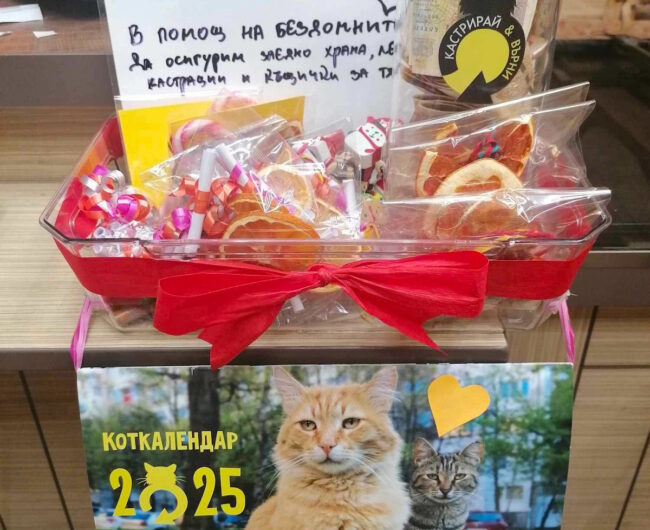 В ПОМОЩ НА БЕЗДОМНИТ
Да осигурим заедно храна,
КАСТРАЦИИ И КЪЩИЧКИ ЗА
КАСТРИРАЙ & ВЪРНИ
КОТКАЛЕНДАР
2025